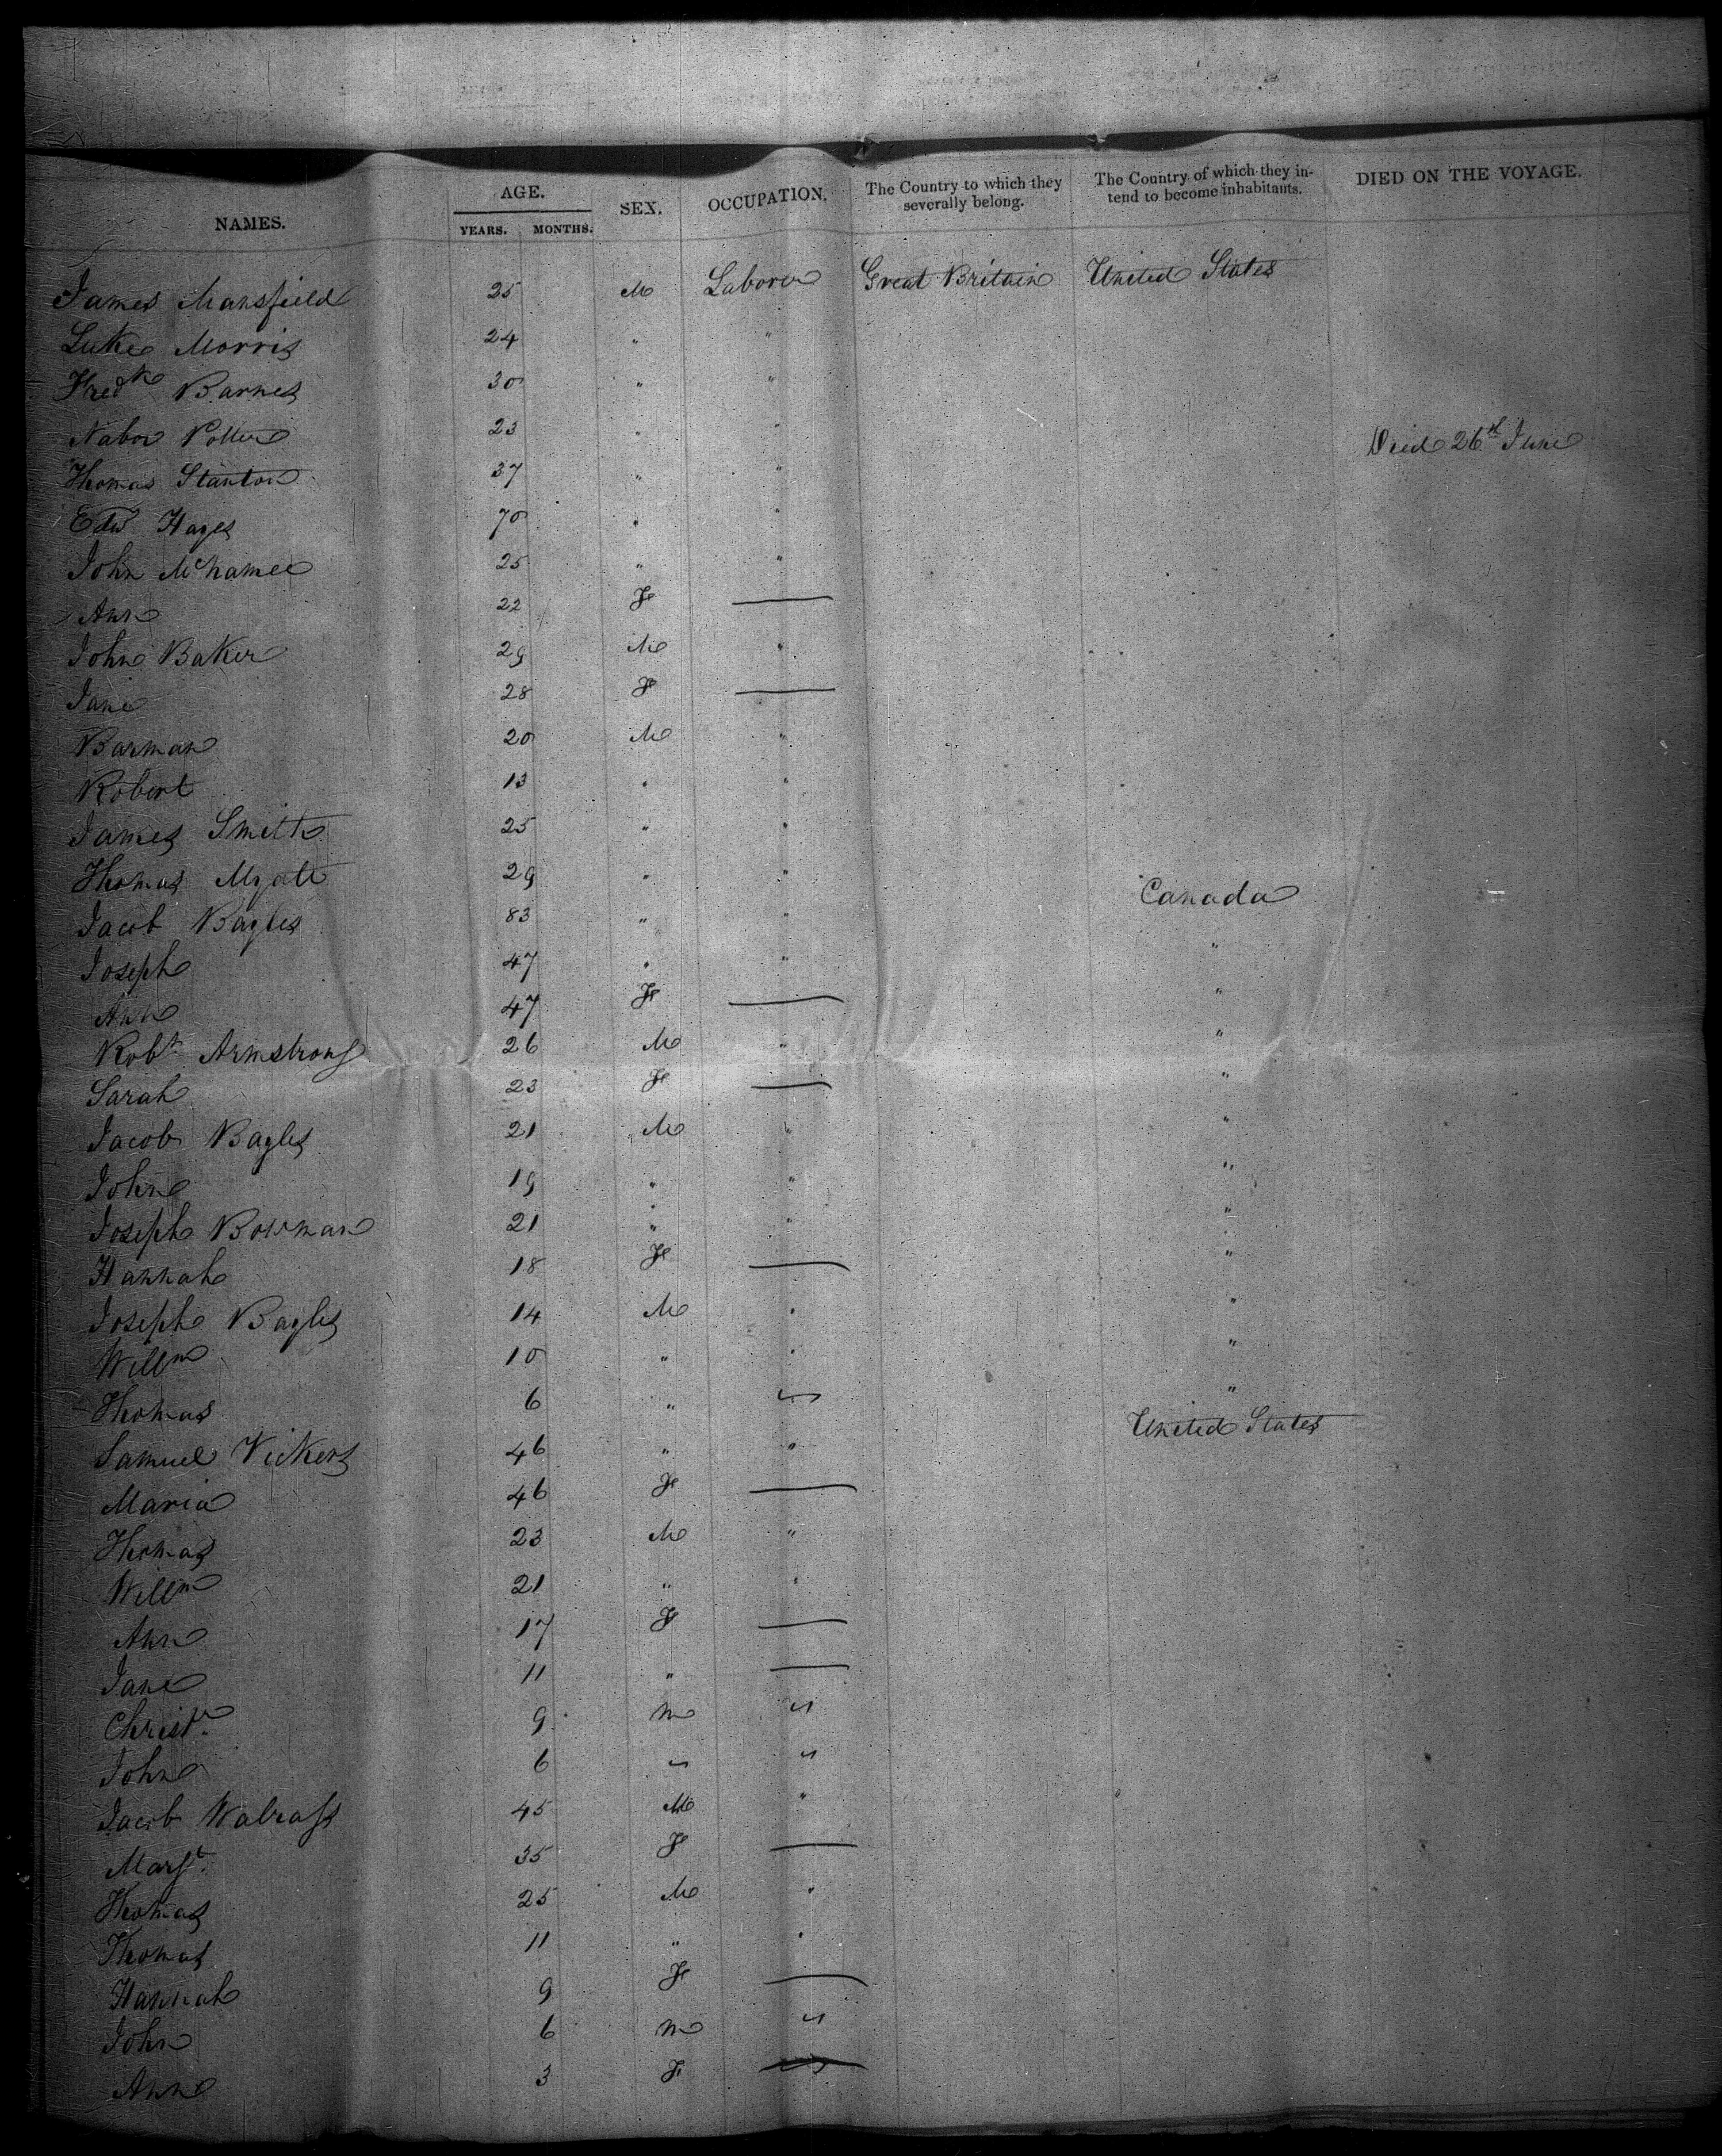 NAMES. AGE. YEARS. MONTHS. SEX. OCCUPATION. The Country to which they severally belong. The Country of which they intend to become inhabitants. DIED ON THE VOYAGE.
James Mansfield 25 M Laborer Great Britain United States
Luke Morris 24 " "
Fredk Barnes 30 " "
Nabor 23 " " Died 26th June
Thomas Stanton 37 " "
Edwd Hayes 70 " "
John McNamee 25 " "
Ann 22 F —
John Baker 29 M "
Jane 28 F —
Barman 20 M "
Robert 13 " "
James Smith 25 " "
Thomas Myatt 29 " "
Jacob Bayles 83 " " Canada
Joseph 47 " " "
Ann 47 F — "
Robt Armstrong 26 M " "
Sarah 23 F — "
Jacob Bayles 21 M " "
John 19 " " "
Joseph Bowman 21 " " "
Hannah 18 F — "
Joseph Bayles 14 M " "
Willm 10 " " "
Thomas 6 " " "
Samuel Vickers 46 " " United States
Maria 46 F —
Thomas 23 M "
Willm 21 " "
Ann 17 F —
Jane 11 " —
Christr. 9 M "
John 6 " "
Jacob Walrass 45 M "
Margt. 35 F —
Thomas 25 M "
Thomas 11 " "
Hannah 9 F —
John 6 M "
Ann 3 F —